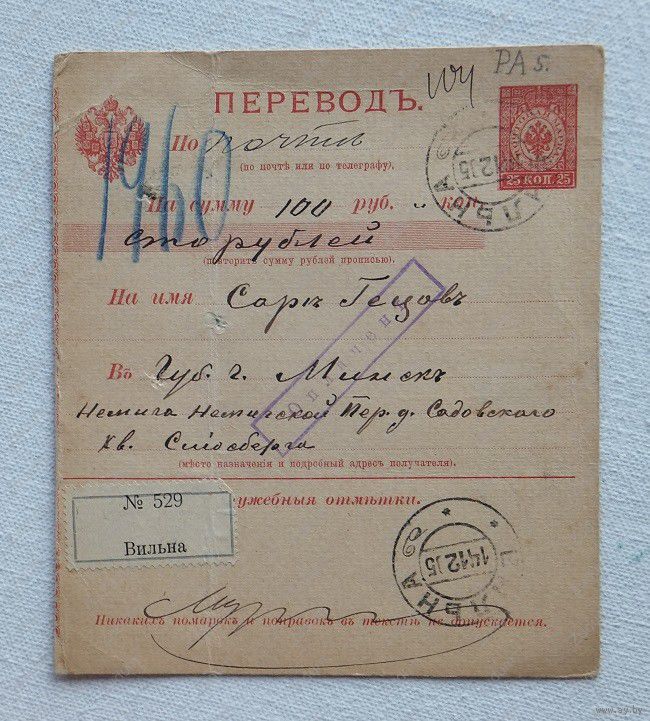 РА 5.
ПЕРЕВОДЪ.
1960
По почтѣ
(по почтѣ или по телеграфу).
25 КОП. 25
На сумму 100 руб. „ коп.
сто рублей
(повторить сумму рублей прописью).
На имя Саръ Гецовъ
Оплачен
Въ Губ. г. Минскъ
Немига Немигской Пер. д. Садовскаго
кв. Слiосберга
(мѣсто назначенія и подробный адресъ получателя).
ужебныя отмѣтки.
№ 529
Вильна
ВИЛЬНА
14 12 05
Никакихъ помарокъ и поправокъ въ текстѣ не допускается.
www.ay.by